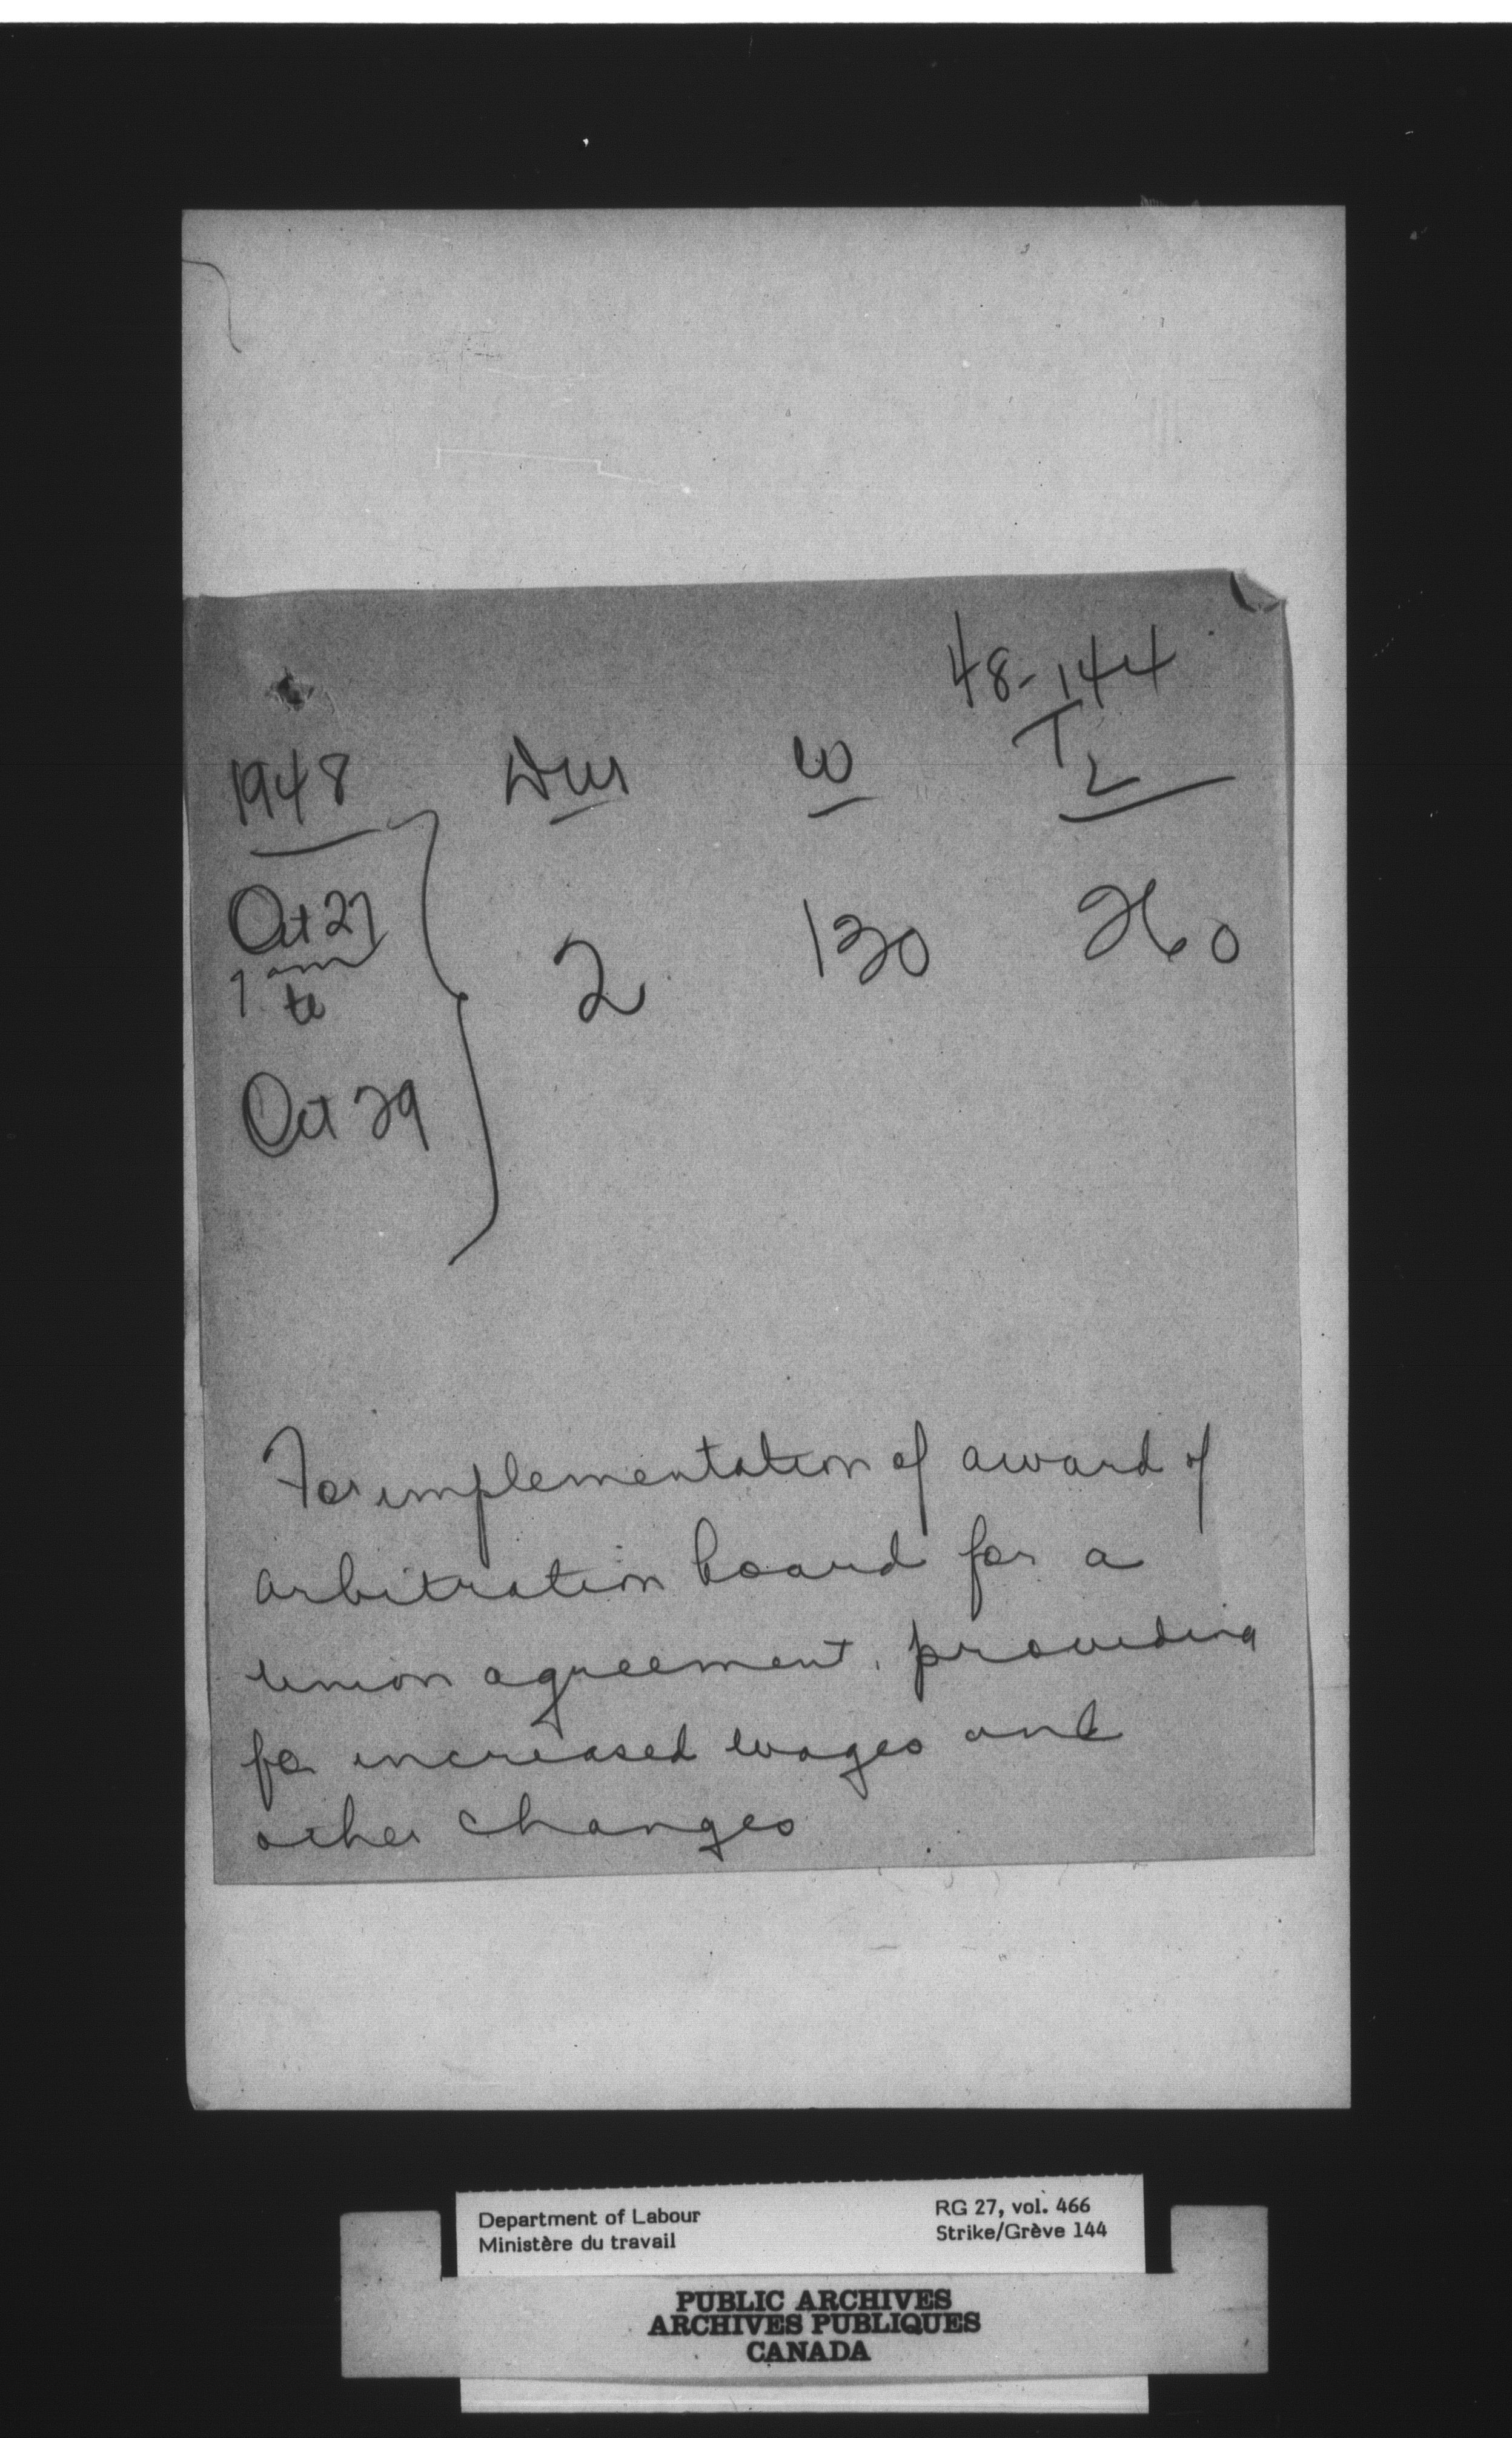 48-144
1948 Dur W TL
Oct 27
1 am
to
Oct 29
2 130 260
For implementation of award of
arbitration board for a
union agreement, providing
for increased wages and
other changes
Department of Labour
Ministère du travail
RG 27, vol. 466
Strike/Grève 144
PUBLIC ARCHIVES
ARCHIVES PUBLIQUES
CANADA